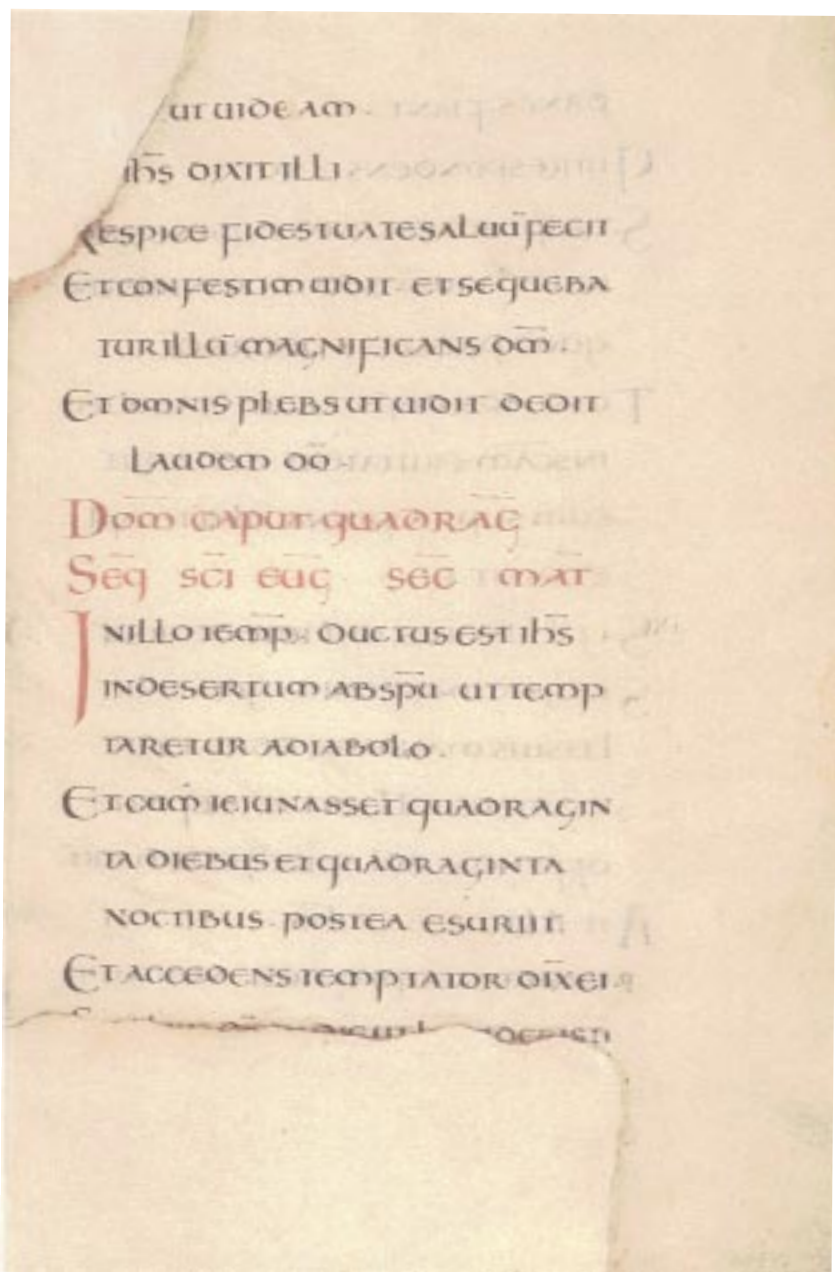 ut uideam.
ihs̄ dixit illi
Respice fides tua te saluū fecit
Et confestim uidit et sequeba
tur illū magnificans dm̄.
Et omnis plebs ut uidit dedit
laudem dō.
Dom̄ caput quadrag̅
Seq̄ sc̄i eug̅ sec̄ mat̄
In illo temp̄. ductus est ihs̄
in desertum ab spū ut temp
taretur a diabolo.
Et cum ieiunasset quadragin
ta diebus et quadraginta
noctibus. postea esuriit.
Et accedens temptator dix̄ ei